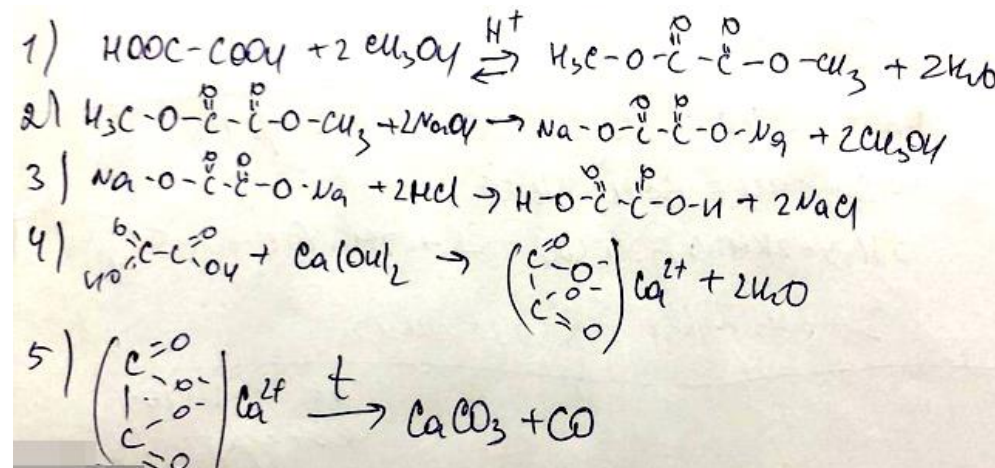 1) HOOC-COOH + 2 CH₃OH ⇌ H⁺ H₃C-O-C(=O)-C(=O)-O-CH₃ + 2H₂O
2) H₃C-O-C(=O)-C(=O)-O-CH₃ + 2NaOH → Na-O-C(=O)-C(=O)-O-Na + 2CH₃OH
3) Na-O-C(=O)-C(=O)-O-Na + 2HCl → H-O-C(=O)-C(=O)-O-H + 2NaCl
4) HO-C(=O)-C(=O)-OH + Ca(OH)₂ → (C(=O)-O⁻ C(=O)-O⁻) Ca²⁺ + 2H₂O
5) (C(=O)-O⁻ C(=O)-O⁻) Ca²⁺ t → CaCO₃ + CO